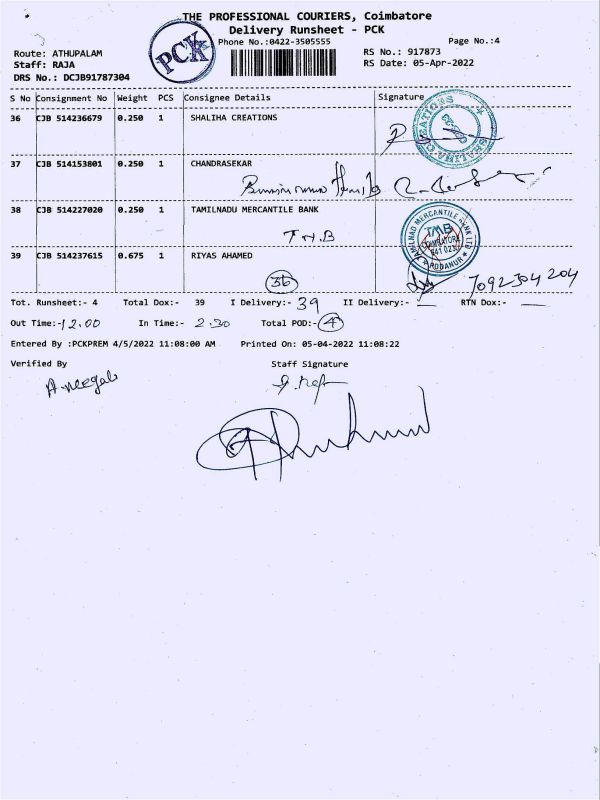 THE PROFESSIONAL COURIERS, Coimbatore
Delivery Runsheet - PCK
PCK
Phone No.:0422-3505555
Page No.:4
Route: ATHUPALAM
RS No.: 917873
Staff: RAJA
RS Date: 05-Apr-2022
DRS No.: DCJB91787304
S No Consignment No Weight PCS Consignee Details Signature
36 CJB 514236679 0.250 1 SHALIHA CREATIONS
SHALIHA CREATIONS
37 CJB 514153801 0.250 1 CHANDRASEKAR
38 CJB 514227020 0.250 1 TAMILNADU MERCANTILE BANK
T.M.B
TAMILNAD MERCANTILE BANK LTD
TMB
COIMBATORE
641 023
PODANUR
39 CJB 514237615 0.675 1 RIYAS AHAMED
36
7092304204
Tot. Runsheet:- 4 Total Dox:- 39 I Delivery:- 39 II Delivery:- — RTN Dox:- —
Out Time:- 12.00 In Time:- 2.30 Total POD:- 4
Entered By :PCKPREM 4/5/2022 11:08:00 AM Printed On: 05-04-2022 11:08:22
Verified By Staff Signature